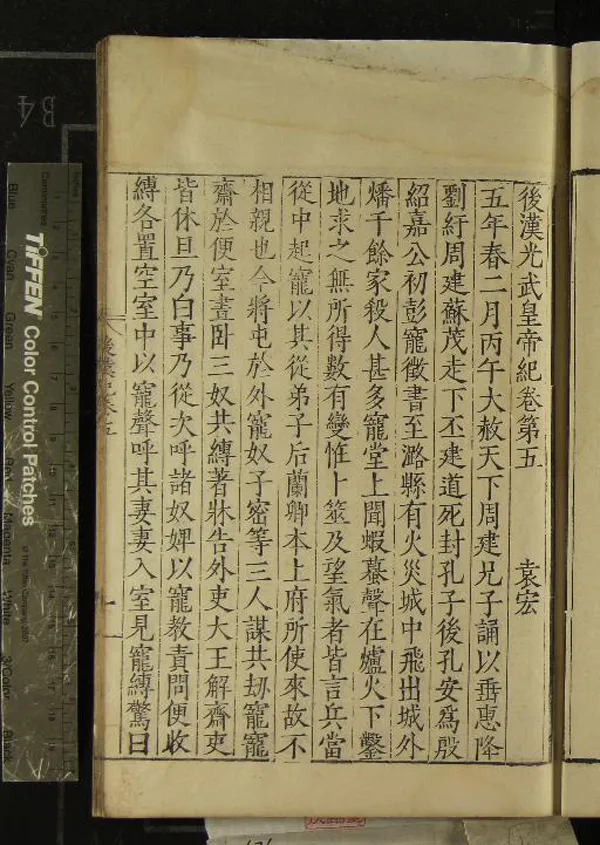 後漢光武皇帝紀卷第五 袁宏
五年春二月丙午大赦天下周建兄子誦以垂惠降
劉紆周建蘇茂走下丕建道死封孔子後孔安為殷
紹嘉公初彭寵徵書至潞縣有火災城中飛出城外
燔千餘家殺人甚多寵堂上聞蝦蟇聲在爐火下鑿
地求之無所得數有變惟卜筮及望氣者皆言兵當
從中起寵以其從弟子后蘭卿本上府所使來故不
相親也令將屯於外寵奴子密等三人謀共劫寵寵
齋於便室晝臥三奴共縛著牀告外吏大王解齋吏
皆休旦乃白事乃從次呼諸奴婢以寵教責問便收
縛各置空室中以寵聲呼其妻妻入室見寵縛驚曰
後漢紀卷五
一
TIFFEN Color Control Patches
Blue
Cyan
Green
Yellow
Red
Magenta
White
3/Color
Black
Centimetres
B4